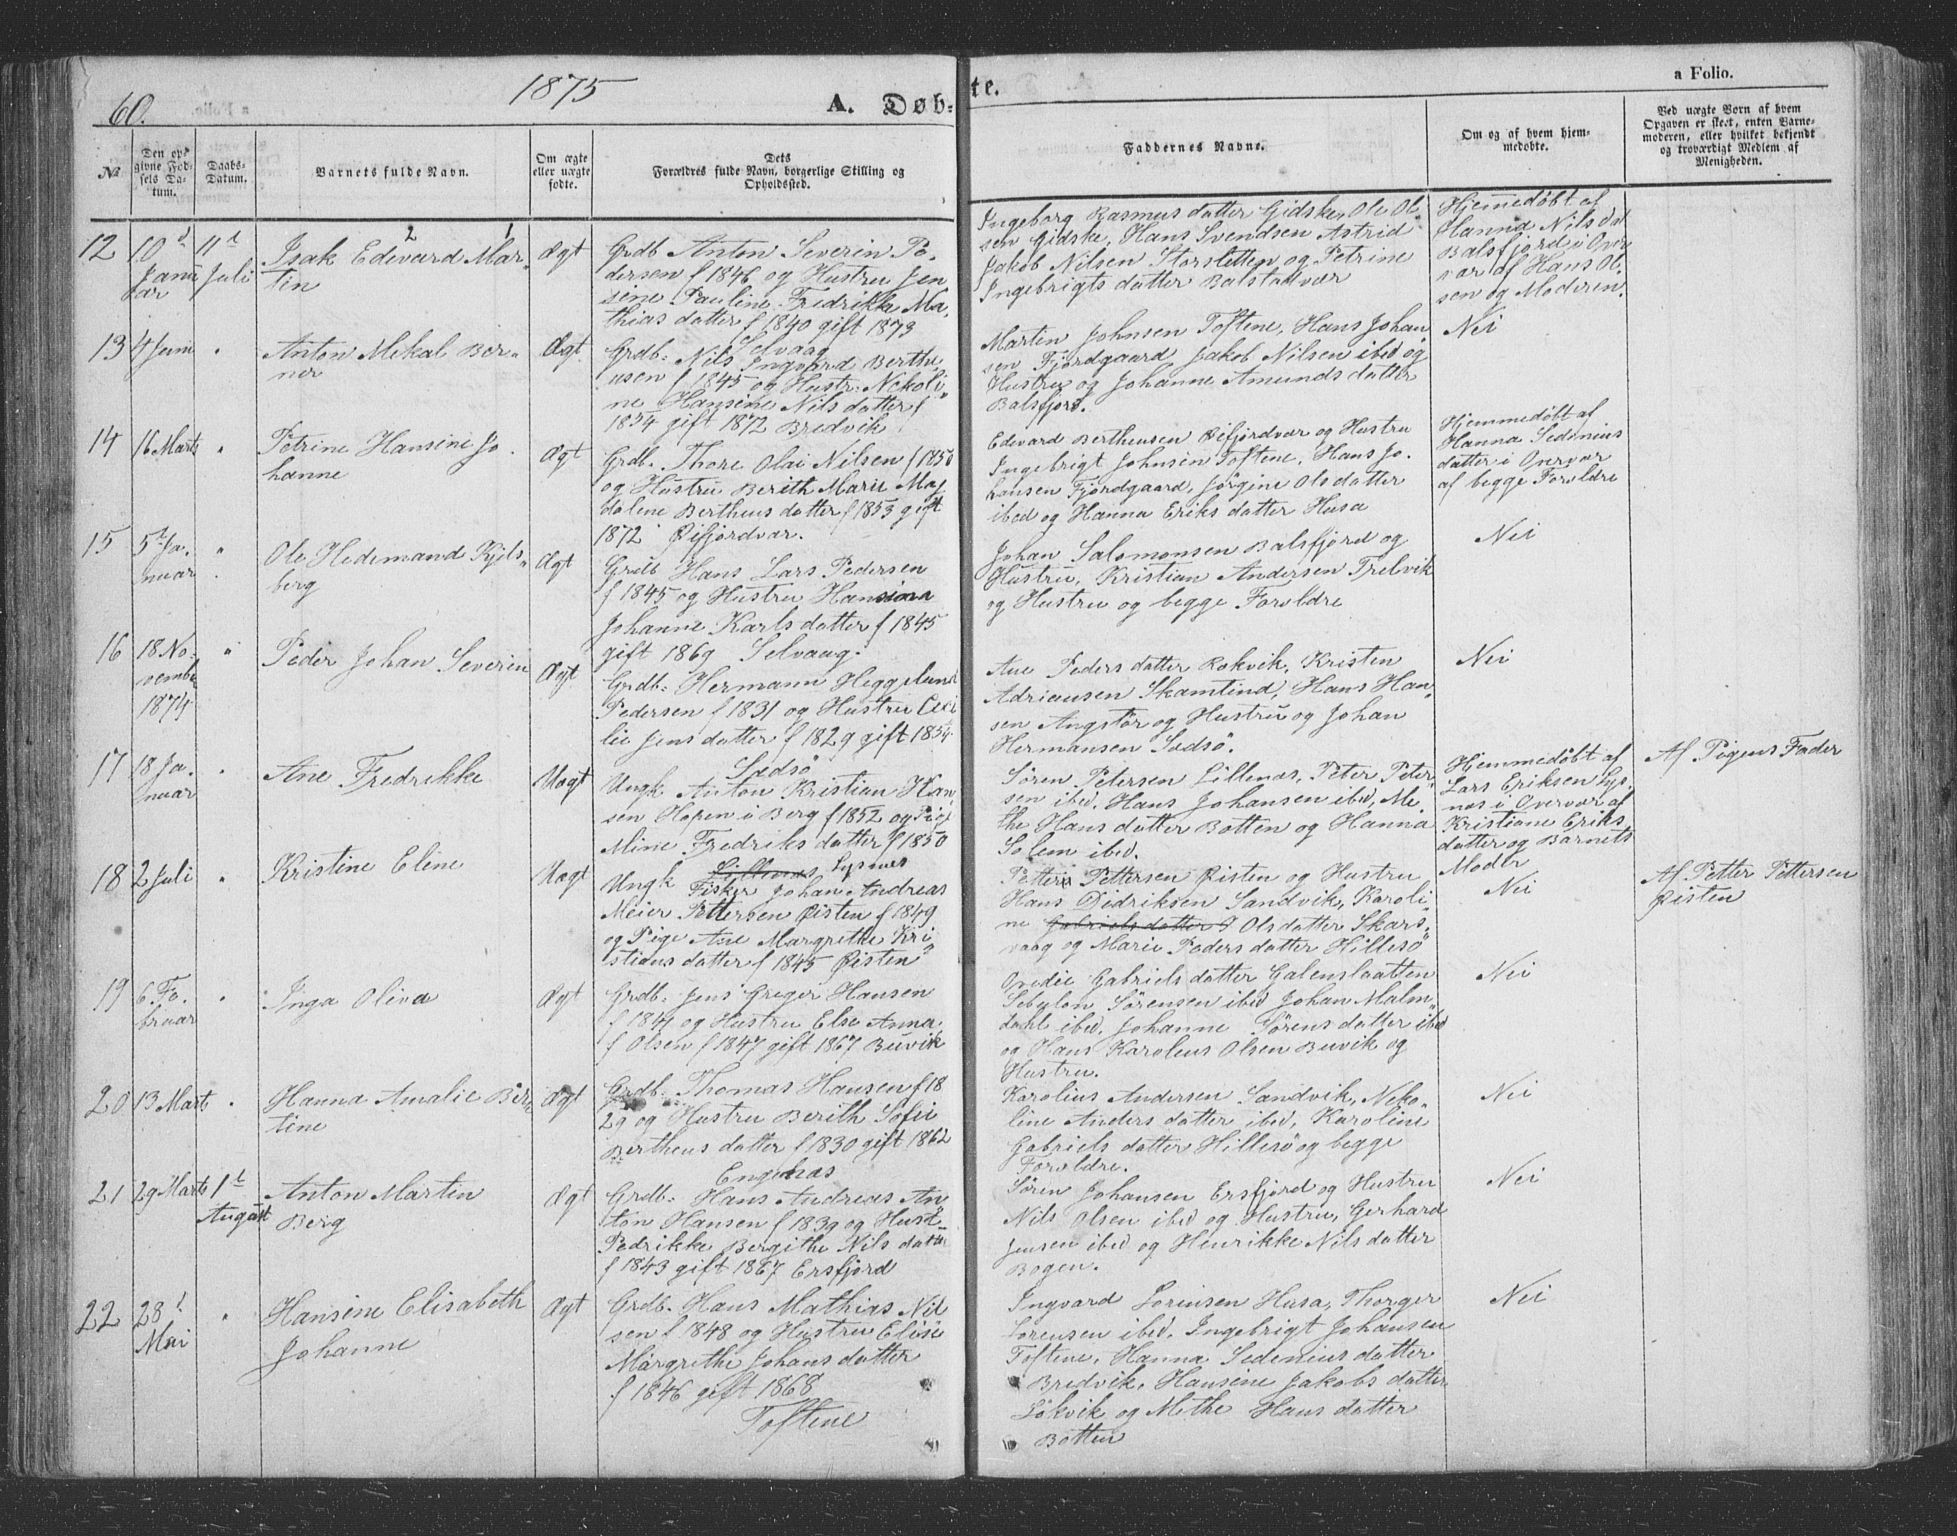 60.
1875
A. Døb-
te.
a Folio.
No
Den opgivne Fødsels Datum.
Daabs-Datum.
Barnets fulde Navn.
Om ægte eller uægte fødte.
Dets Forældres fulde Navn, borgerlige Stilling og Opholdssted.
Faddernes Navne.
Om og af hvem hjemmedøbte.
Ved uægte Børn af hvem Opgaven er skeet, enten Barnemoderen, eller hvilket bekjendt og troværdigt Medlem af Menigheden.
12
10d
Janu
ar
11d
Juli
2 1
Isak Edevard Mar-
tin
Ægt
Grdb Anton Severin Pe-
dersen f 1846 og Hustru Jen
sine Pauline Fredrikke Ma-
thias datter f 1840 gift 1873
Selvaag
Ingeborg Rasmus datter Gidske, Ole Ol-
sen Gidske, Hans Svendsen Astrid
Jakob Nilsen Storsletten og Petrine
Ingebrigts datter Balstadvær
Hjemmedøbt af
Hanna Nils dat
Balsfjord i Over
vær af Hans Ol-
sen og Moderen.
13
4 Juni
"
Anton Mekal Ber-
ner
Ægt
Grdb: Nils Ingvard Berthe
usen f 1845 og Hustr: Nekoli-
ne Hansine Nils datter f
1854 gift 1872 Bredvik
Martin Johnsen Toftene, Hans Johan
sen Fjordgaard Jakob Nilsen ibed og
Hustru og Johanne Amunds datter
Balsfjord.
Nei
14
16 Marts
"
Petrine Hansine Jo-
hanne
Ægt
Grdb. Thore Olai Nilsen f 1850
og Hustru Berith Marie Mag
dalene Bertheus datter f 1853 gift
1872 Øifjordvær.
Edevard Bertheusen Øifjordvær og Hustru
Ingebrigt Johnsen Toftene, Hans Jo-
hansen Fjordgaard, Jørgine Ols datter
ibed og Hanna Eriks datter Husa
Hjemmedøbt af
Hanna Sedenius
datter i Overvær
af begge Forældre
15
5t Ja-
nuar
"
Ole Hedemand Kjels-
berg
Ægt
Grdb Hans Lars Pedersen
f 1845 og Hustru Hansine
Johanne Karls datter f 1845
gift 1869 Selvaag.
Johan Salomonsen Balsfjord og
Hustru, Kristian Andersen Trelvik
og Hustru og begge Forældre
Nei
16
18 No-
vembr
1874
"
Peder Johan Severin
Ægt
Grdb: Hermann Heggelund
Pedersen f 1831 og Hustru Ceci
lie Jens datter f 1829 gift 1854
Sødsø
Ane Peders datter Rokvik, Kristen
Adriansen Skamtind, Hans Han-
sen Angstör og Hustru og Johan
Hermansen Sødsø.
Nei
17
18 Ja-
nuar
"
Ane Fredrikke
Uægt
Ungk. Anton Kristian Han-
sen Hopen i Berg f 1852 og Pige
Mine Fredriks datter f 1850
Lillenas Lysnes
Søren Petersen Lillenas, Peter Peter-
sen ibed, Hans Johansen ibed, Me-
the Hans datter Botten og Hanna
Solem ibed.
Hjemmedøbt af
Lars Eriksen Lys-
nes i Overvær af
Kristiane Eriks
datter og Barnets
Moder
Af Pigens Fader
18
2 Juli
"
Kristine Eline
Uægt
Ungk Fisker Johan Andreas
Meier Pettersen Øisten f 1849
og Pige Ane Margrethe Kri-
stians datter f 1845 Øisten
Petter Pettersen Øisten og Hustru
Hans Didriksen Sandvik, Karoli-
ne Gabriels datter Ols datter Skars-
vaag og Marie Peders datter Hillesø
Nei
Af Petter Pettersen
Øisten
19
6 Fe-
bruar
"
Inga Oliva
Ægt
Grdb: Jens Greger Hansen
f 1841 og Hustru Else Anna
f Olsen f 1847 gift 1867 Buvik
Ovedie Gabriels datter Galenslaatten
Sebylon Sørensen ibed Johan Malm-
dahl ibed, Johanne Sørens datter ibed
og Hans Karolius Olsen Buvik og
Hustru.
Nei
20
13 Marts
"
Hanna Amalie Ber-
tine
Ægt
Grdb. Thomas Hansen f 18
29 og Hustru Berith Sofie
Bertheus datter f 1830 gift 1862
Engenæs
Karolius Andersen Sandvik, Neko-
line Anders datter ibed, Karoline
Gabriels datter Hillesø og begge
Forældre.
Nei
21
29 Marts
1t
August
Anton Martin
Berg
Ægt
Grdb: Hans Andreas An
ton Hansen f 1839 og Hust-
Pedrikke Bergithe Nils datter
f 1843 gift 1867 Ersfjord
Søren Johansen Ersfjord og Hustru
Nils Olsen ibed og Hustru, Gerhard
Jensen ibed og Henrikke Nils datter
Bogen.
Nei
22
28d
Mai
"
Hansine Elisabeth
Johanne
Ægt
Grdb. Hans Mathias Nil
sen f 1848 og Hustru Elise
Margrethe Johans datter
f 1846 gift 1868
Toftene
Ingvard Lorensen Husa, Thorger
Lorensen ibed, Ingebrigt Johansen
Toftene, Hanna Sedenius datter
Bredvik, Hansine Jakobs datter
Løkvik og Methe Hans datter
Botten
Nei